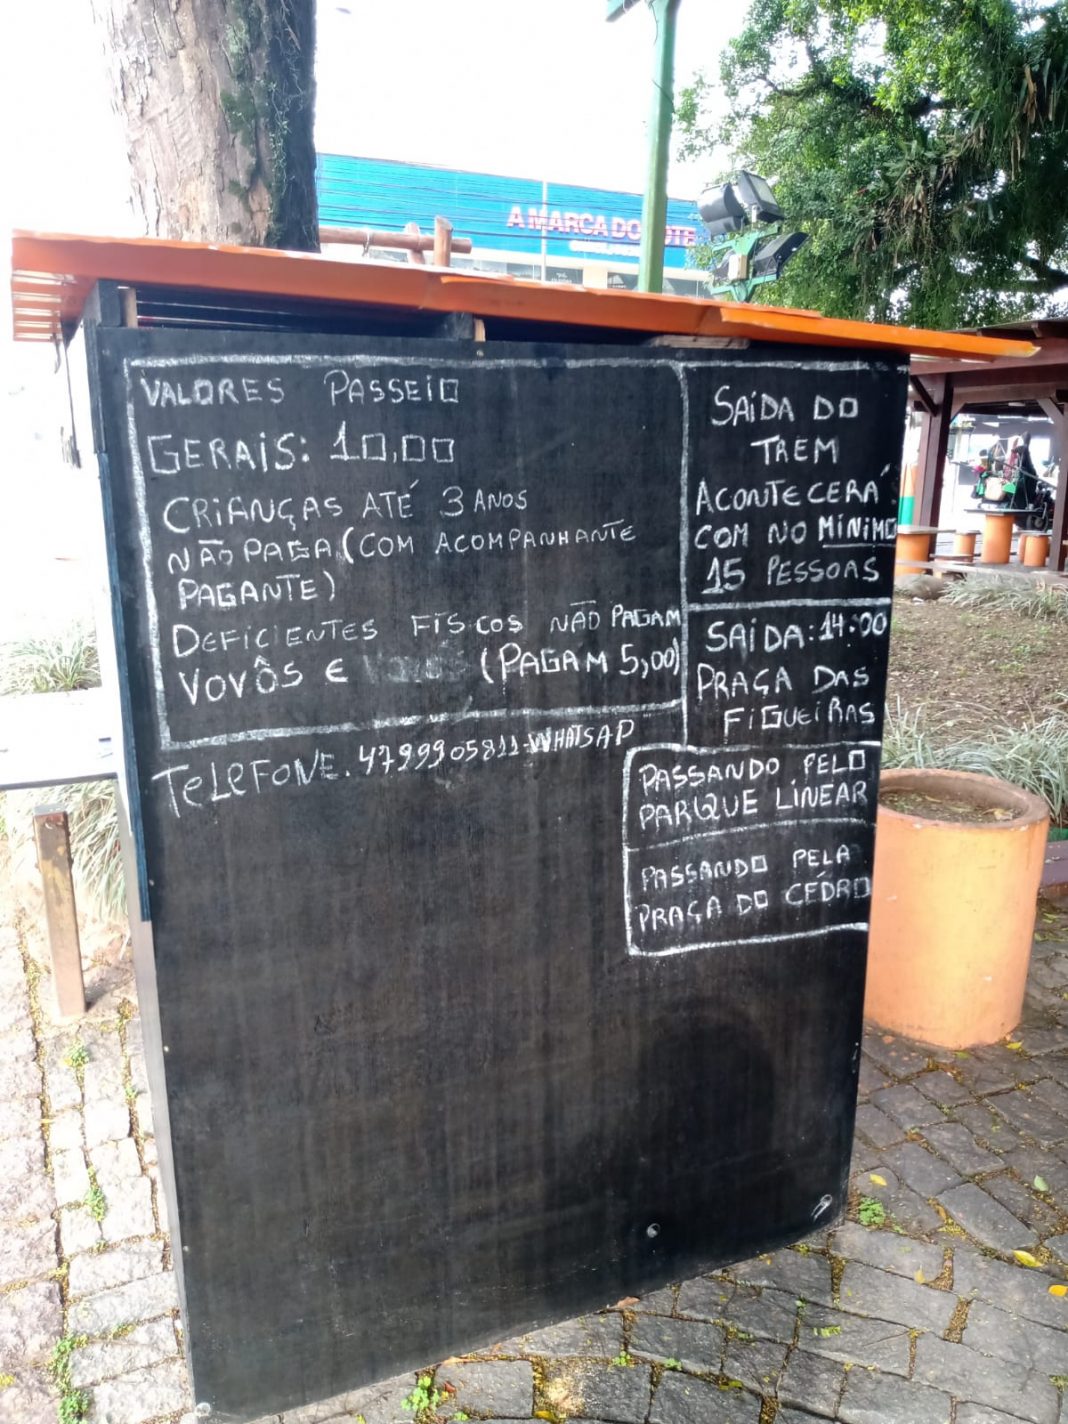 A MARCA DO
VALORES PASSEIO
GERAIS: 10,00
CRIANÇAS ATÉ 3 ANOS
NÃO PAGA (COM ACOMPANHANTE
PAGANTE)
DEFICIENTES FÍSCOS NÃO PAGAM
VOVÔS E (PAGAM 5,00)
TELEFONE. 4799905811-WHATSAP
SAÍDA DO
TREM
ACONTECERÁ
COM NO MÍNIMO
15 PESSOAS
SAÍDA: 14:00
PRAÇA DAS
FIGUEIRAS
PASSANDO PELO
PARQUE LINEAR
PASSANDO PELA
PRAÇA DO CÉDRO